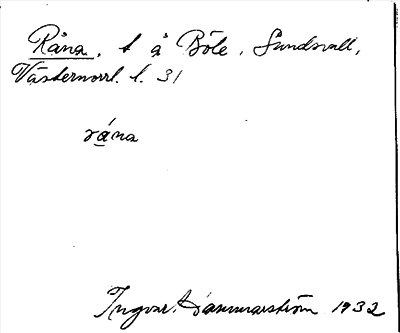 Råna, t å Böle, Sundsvall,
Västernorrl. l. 31
råna
Ingvar Hammarström 1932